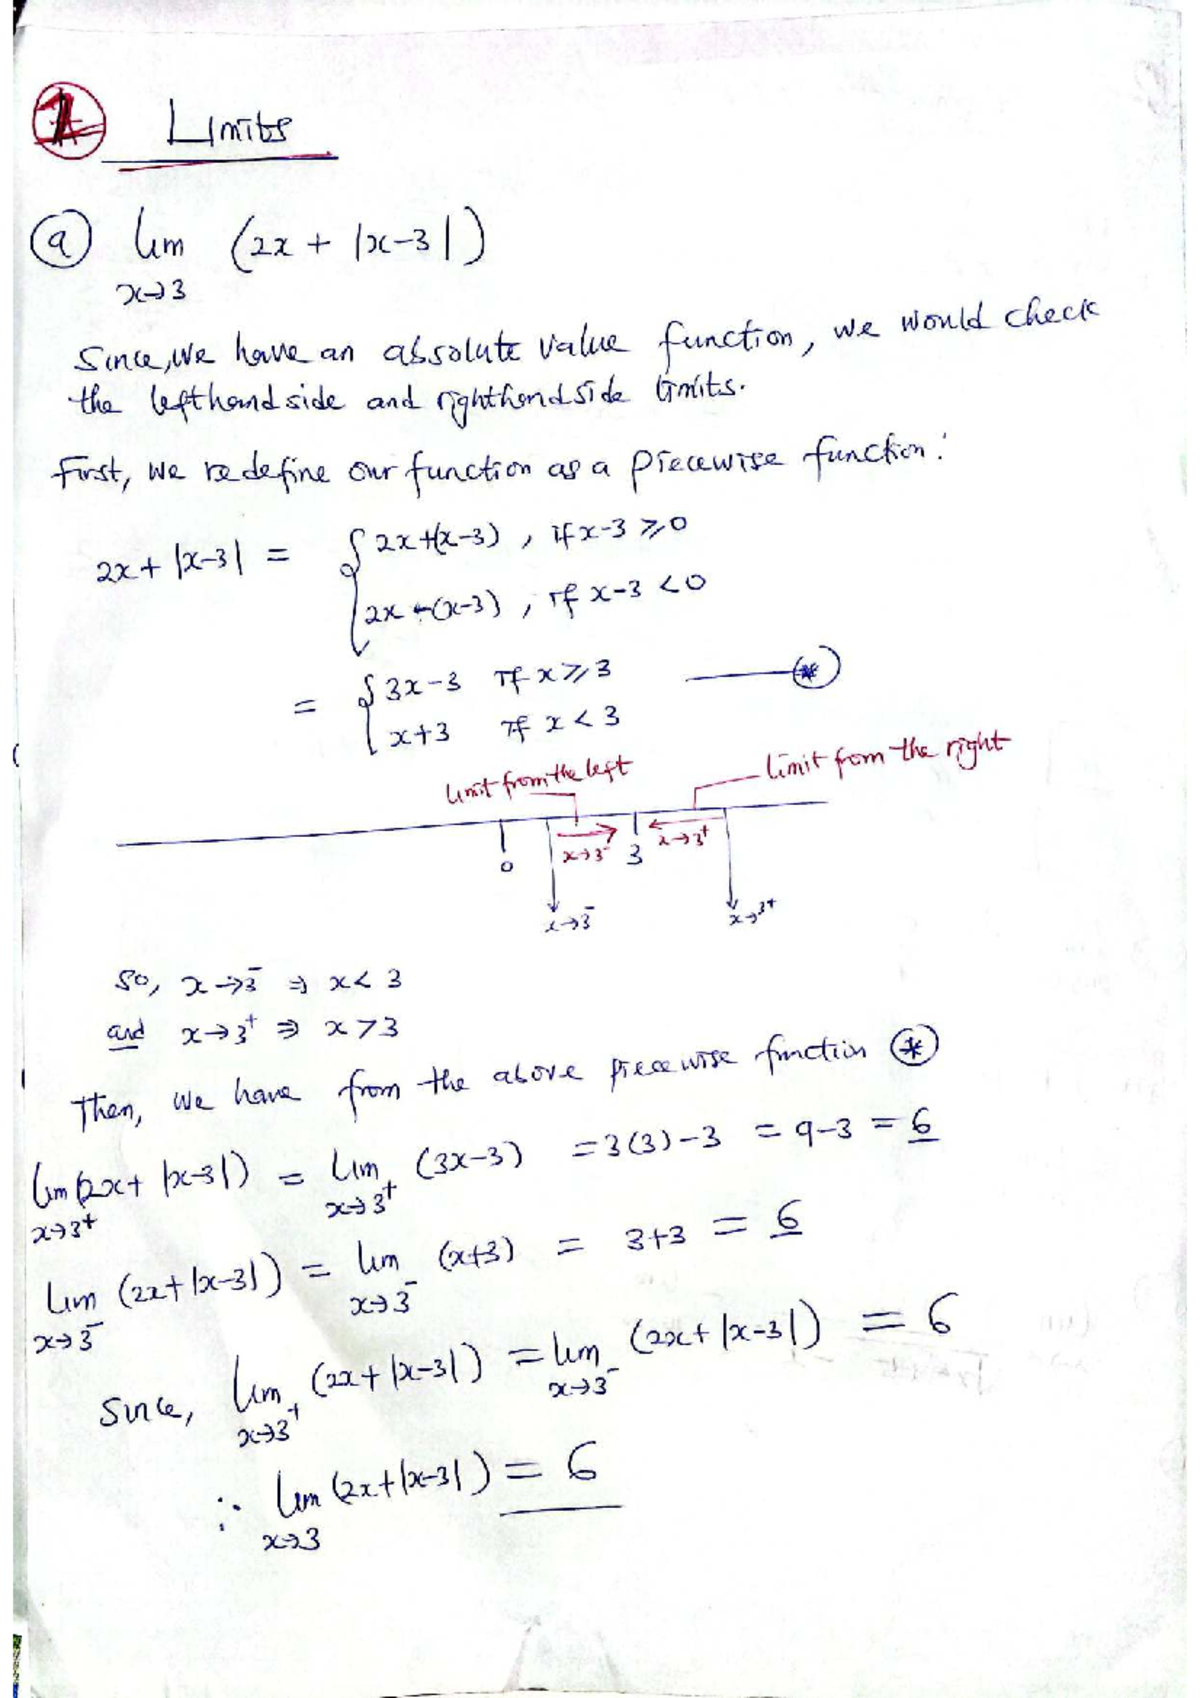 1 Limits
(a) lim (2x + |x-3|)
x→3
Since, we have an absolute value function, we would check
the lefthand side and righthand side limits.
First, we redefine our function as a piecewise function:
2x + |x-3| = { 2x+(x-3) , if x-3 ≥ 0
2x -(x-3) , if x-3 < 0
= { 3x-3 if x ≥ 3 —— (*)
x+3 if x < 3
limit from the left limit from the right
0 x→3⁻ 3 x→3⁺
x→3⁻ x→3⁺
So, x→3⁻ ⇒ x < 3
and x→3⁺ ⇒ x > 3
Then, we have from the above piecewise function (*)
lim (2x + |x-3|) = lim (3x-3) = 3(3)-3 = 9-3 = 6
x→3⁺ x→3⁺
lim (2x+|x-3|) = lim (x+3) = 3+3 = 6
x→3⁻ x→3⁻
Since, lim (2x+|x-3|) = lim (2x+|x-3|) = 6
x→3⁺ x→3⁻
∴ lim (2x+|x-3|) = 6
x→3